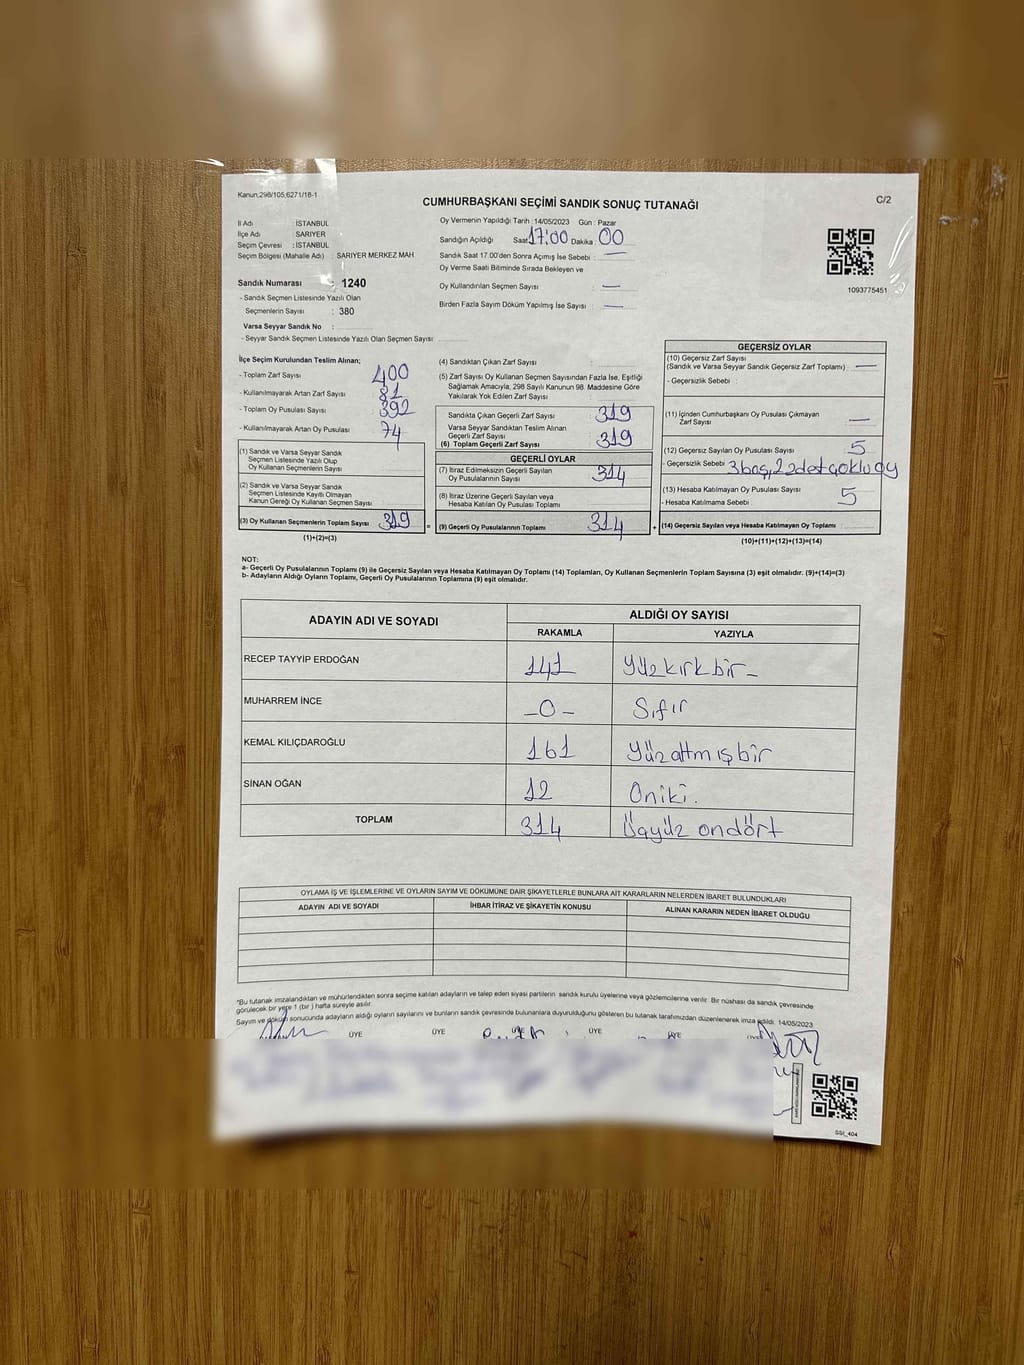 Kanun,298/105,6271/18-1
CUMHURBAŞKANI SEÇİMİ SANDIK SONUÇ TUTANAĞI
C/2
İl Adı İSTANBUL
İlçe Adı SARIYER
Seçim Çevresi : İSTANBUL
Seçim Bölgesi (Mahalle Adı) : SARIYER MERKEZ MAH
Sandık Numarası : 1240
- Sandık Seçmen Listesinde Yazılı Olan
Seçmenlerin Sayısı : 380
Varsa Seyyar Sandık No :
- Seyyar Sandık Seçmen Listesinde Yazılı Olan Seçmen Sayısı :
Oy Vermenin Yapıldığı Tarih : 14/05/2023 Gün : Pazar
Sandığın Açıldığı Saat 17:00 Dakika 00
Sandık Saat 17.00'den Sonra Açımış İse Sebebi : —
Oy Verme Saati Bitiminde Sırada Bekleyen ve
Oy Kullandırılan Seçmen Sayısı : —
Birden Fazla Sayım Döküm Yapılmış İse Sayısı : —
1093775451
İlçe Seçim Kurulundan Teslim Alınan;
- Toplam Zarf Sayısı 400
- Kullanılmayarak Artan Zarf Sayısı 81
- Toplam Oy Pusulası Sayısı 392
- Kullanılmayarak Artan Oy Pusulası 74
(1) Sandık ve Varsa Seyyar Sandık
Seçmen Listesinde Yazılı Olup
Oy Kullanan Seçmenlerin Sayısı
(2) Sandık ve Varsa Seyyar Sandık
Seçmen Listesinde Kayıtlı Olmayan
Kanun Gereği Oy Kullanan Seçmen Sayısı
(3) Oy Kullanan Seçmenlerin Toplam Sayısı 319 =
(1)+(2)=(3)
(4) Sandıktan Çıkan Zarf Sayısı :
(5) Zarf Sayısı Oy Kullanan Seçmen Sayısından Fazla İse, Eşitliği
Sağlamak Amacıyla, 298 Sayılı Kanunun 98. Maddesine Göre
Yakılarak Yok Edilen Zarf Sayısı :
Sandıkta Çıkan Geçerli Zarf Sayısı 319
Varsa Seyyar Sandıktan Teslim Alınan
Geçerli Zarf Sayısı 319
(6) Toplam Geçerli Zarf Sayısı
GEÇERLİ OYLAR
(7) İtiraz Edilmeksizin Geçerli Sayılan
Oy Pusulasının Sayısı 314
(8) İtiraz Üzerine Geçerli Sayılan veya
Hesaba Katılan Oy Pusulası Toplamı
(9) Geçerli Oy Pusulalarının Toplamı 314 +
GEÇERSİZ OYLAR
(10) Geçersiz Zarf Sayısı
(Sandık ve Varsa Seyyar Sandık Geçersiz Zarf Toplamı) : —
- Geçersizlik Sebebi :
(11) İçinden Cumhurbaşkanı Oy Pusulası Çıkmayan
Zarf Sayısı : —
(12) Geçersiz Sayılan Oy Pusulası Sayısı : 5
- Geçersizlik Sebebi 3 boş, 2 adet çoklu oy
(13) Hesaba Katılmayan Oy Pusulası Sayısı : 5
- Hesaba Katılmama Sebebi :
(14) Geçersiz Sayılan veya Hesaba Katılmayan Oy Toplamı
(10)+(11)+(12)+(13)=(14)
NOT:
a- Geçerli Oy Pusulalarının Toplamı (9) ile Geçersiz Sayılan veya Hesaba Katılmayan Oy Toplamı (14) Toplamları, Oy Kullanan Seçmenlerin Toplam Sayısına (3) eşit olmalıdır. (9)+(14)=(3)
b- Adayların Aldığı Oyların Toplamı, Geçerli Oy Pusulalarının Toplamına (9) eşit olmalıdır.
ADAYIN ADI VE SOYADI ALDIĞI OY SAYISI
RAKAMLA YAZIYLA
RECEP TAYYİP ERDOĞAN 141 Yüzkırkbir –
MUHARREM İNCE – 0 – Sıfır
KEMAL KILIÇDAROĞLU 161 Yüzaltmışbir
SİNAN OĞAN 12 Oniki.
TOPLAM 314 Üçyüz ondört
OYLAMA İŞ VE İŞLEMLERİNE VE OYLARIN SAYIM VE DÖKÜMÜNE DAİR ŞİKAYETLERLE BUNLARA AİT KARARLARIN NELERDEN İBARET BULUNDUKLARI
ADAYIN ADI VE SOYADI İHBAR İTİRAZ VE ŞİKAYETİN KONUSU ALINAN KARARIN NEDEN İBARET OLDUĞU
*Bu tutanak imzalandıktan ve mühürlendikten sonra seçime katılan adayların ve talep eden siyasi partilerin sandık kurulu üyelerine veya gözlemcilerine verilir. Bir nüshası da sandık çevresinde
görülecek bir yere 1 (bir ) hafta süreyle asılır.
Sayım ve döküm sonucunda adayların aldığı oyların sayılarını ve bunların sandık çevresinde bulunanlara duyurulduğunu gösteren bu tutanak tarafımızdan düzenlenerek imza edildi. 14/05/2023
ÜYE ÜYE ÜYE ÜYE ÜYE
SSI_404